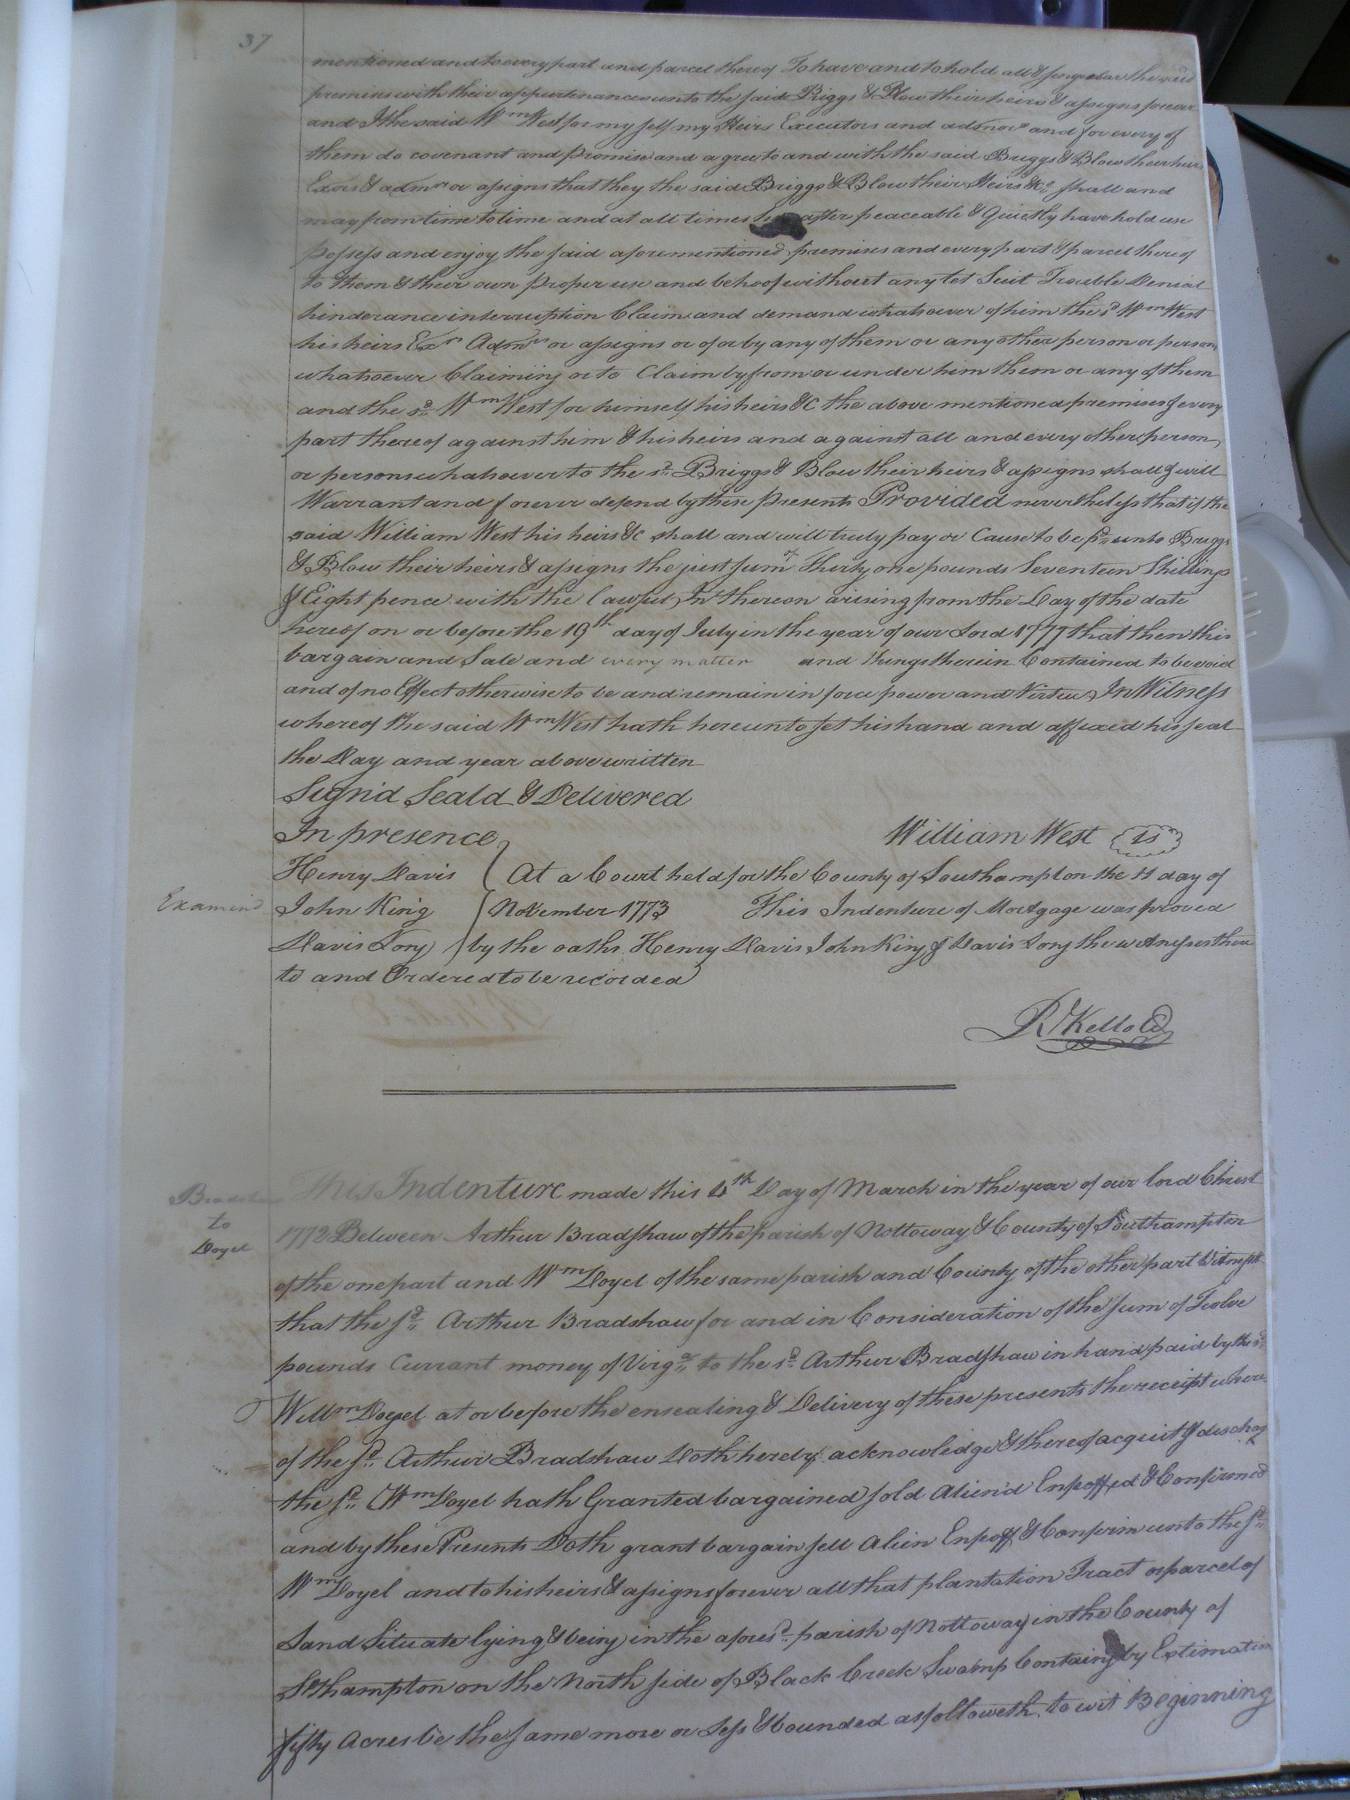 37
mentioned and to every part and parcel thereof To have and to hold all & singular the said
premises with their appurtenances unto the said Briggs & Blow their heirs & assigns forever
and I the said Wm West for my self my Heirs Executors and admors and for every of
them do covenant and promise and agree to and with the said Briggs & Blow their heirs
Exors & admrs or assigns that they the said Briggs & Blow their Heirs &c shall and
may from time to time and at all times hereafter peaceable & Quietly have hold use
possess and enjoy the said aforementioned premises and every part & parcel thereof
to them & their own proper use and behoof without any let Suit Trouble Denial
hinderance interruption Claim and demand whatsoever of him the sd Wm West
his heirs Exrs Admrs or assigns or of or by any of them or any other person or persons
whatsoever Claiming or to Claim by from or under him them or any of them
and the sd Wm West for himself his heirs &c the above mentioned premises & every
part thereof against him & his heirs and against all and every other person
or persons whatsoever to the sd Briggs & Blow their heirs & assigns shall & will
Warrant and forever defend by these presents Provided nevertheless that if the
said William West his heirs &c shall and will truly pay or Cause to be pd unto Briggs
& Blow their heirs & assigns the just sum Thirty one pounds Seventeen Shillings
& Eight pence with the lawful Int thereon arising from the Day of the date
hereof on or before the 19th day of July in the year of our Lord 1777 that then this
bargain and Sale and every matter and things therein Contained to be void
and of no Effect otherwise to be and remain in force power and Virtue In Witness
whereof the said Wm West hath hereunto set his hand and affixed his seal
the Day and year above written
Sign'd Seald & Delivered
In presence William West Ls
Henry Davis At a Court held for the County of Southampton the 11 day of
Examin'd John King November 1773 This Indenture of Mortgage was proved
Davis Long by the oaths Henry Davis John King & Davis Long the witnesses there
to and Ordered to be recorded
R Kello Cl
This Indenture made this 4th Day of March in the year of our lord Christ
Bradshaw to Doyel
1772 Between Arthur Bradshaw of the parish of Nottoway & County of Southampton
of the one part and Wm Doyel of the same parish and County of the other part Witnesst
that the sd Arthur Bradshaw for and in Consideration of the sum of Twelve
pounds Currant money of Virga to the sd Arthur Bradshaw in hand paid by the sd
Willm Doyel at or before the ensealing & Delivery of these presents the receipt where
of the sd Arthur Bradshaw Doth hereby acknowledge & thereof acquit & discharg
the sd Wm Doyel hath Granted bargained sold Alien'd Enfeoffed & Confirmed
and by these Presents Doth grant bargain sell Alien Enfeoff & Confirm unto the sd
Wm Doyel and to his heirs & assigns forever all that plantation Tract or parcel of
Land Situate lying & being in the aforesd parish of Nottoway in the County of
Sthampton on the North side of Black Creek Swamp Containg by Estimation
fifty Acres be the same more or Less & bounded as followeth to wit Beginning